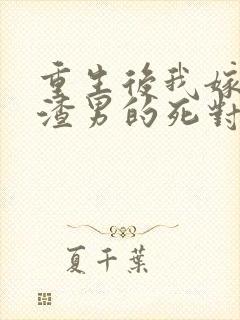 重生後我嫁
渣男的死對
夏千葉